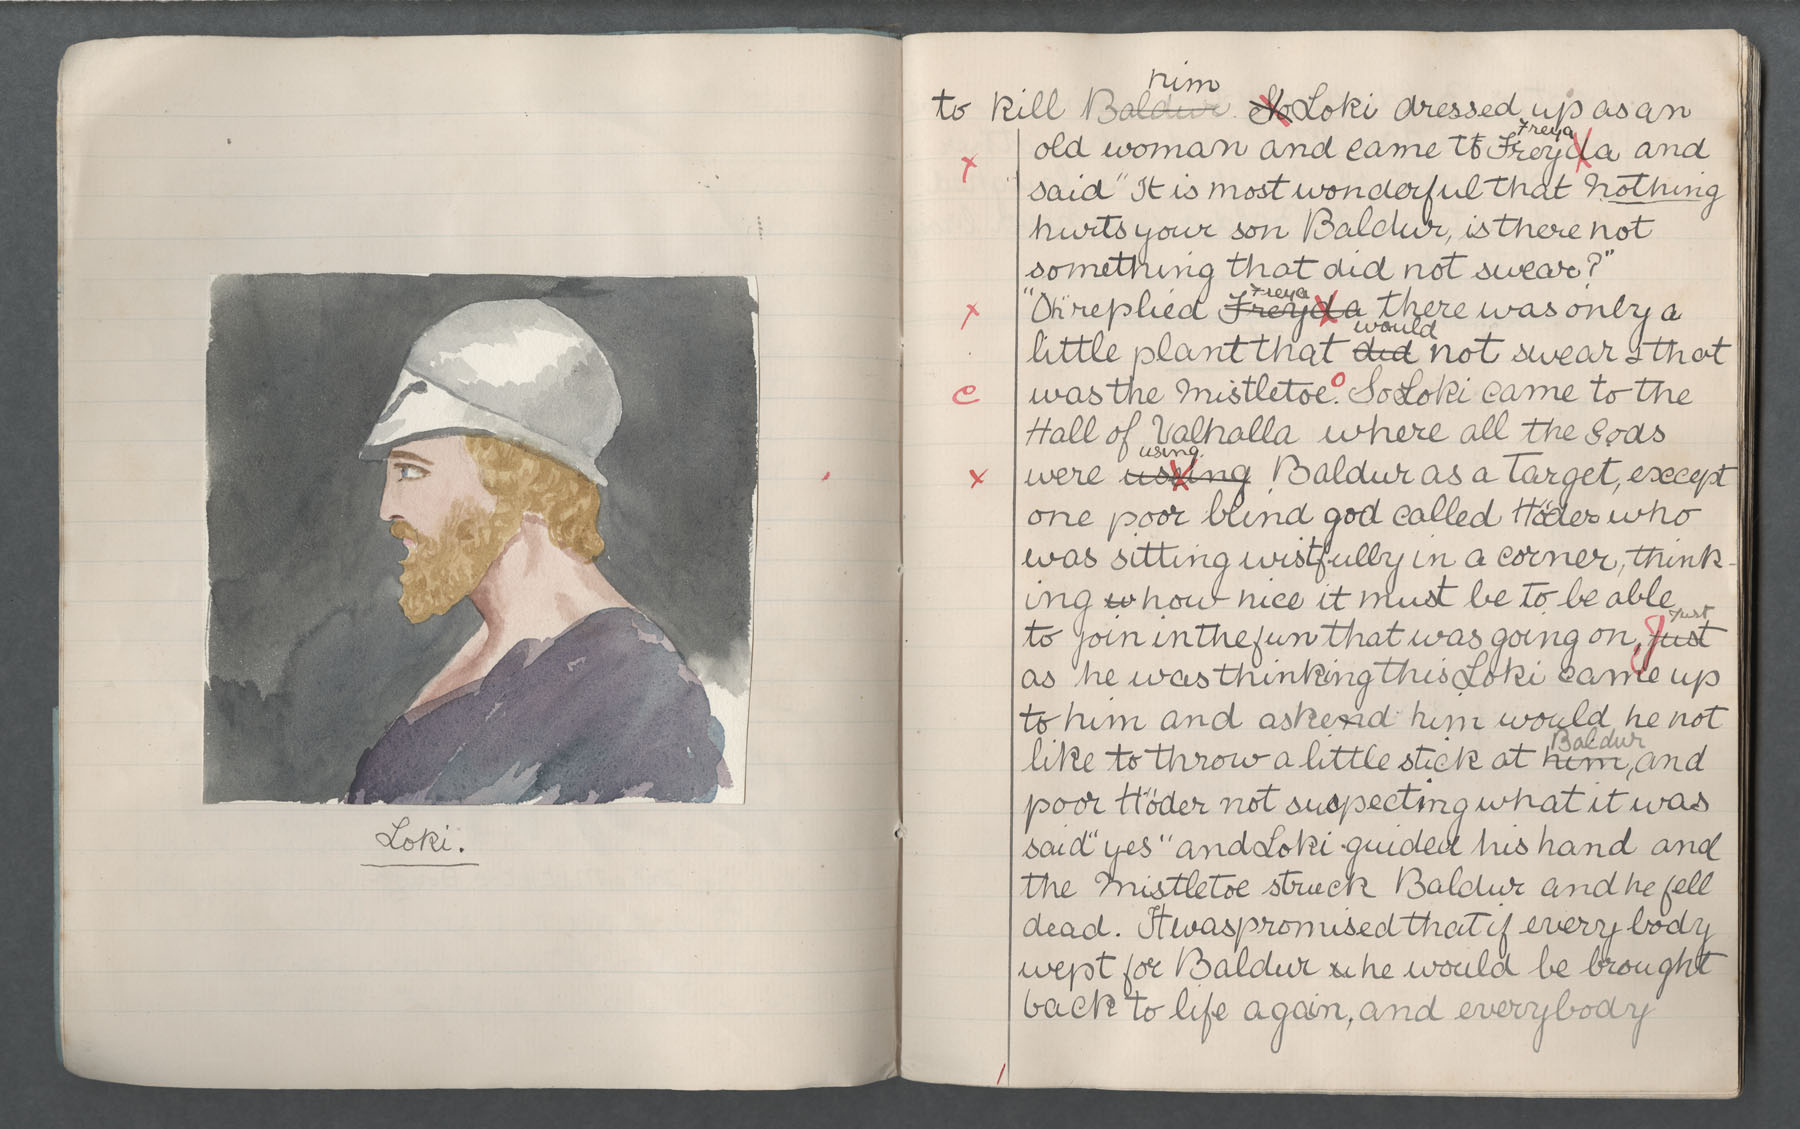 Loki.
him
to kill Baldur. So Loki dressed up as an
Freya
old woman and came to Freyda and
said "It is most wonderful that nothing
hurts your son Baldur, is there not
something that did not swear?"
Freya
"Oh" replied Freyda there was only a
would
little plant that did not swear & that
was the Mistletoe. So Loki came to the
Hall of Valhalla where all the Gods
using.
were ussing Baldur as a Target, except
one poor blind god called Höder who
was sitting wistfully in a corner, think-
ing w how nice it must be to be able
Just
to join in the fun that was going on, Just
as he was thinking this Loki came up
to him and asked him would he not
Baldur
like to throw a little stick at him, and
poor Höder not suspecting what it was
said "yes" and Loki guided his hand and
the Mistletoe struck Baldur and he fell
dead. It was promised that if every body
wept for Baldur he would be brought
back to life again, and everybody